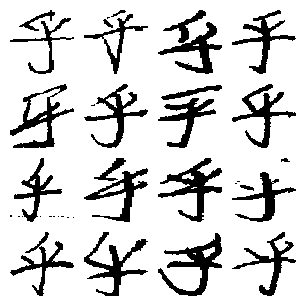 乎乎乎乎
乎乎乎乎
乎乎乎乎
乎乎乎乎